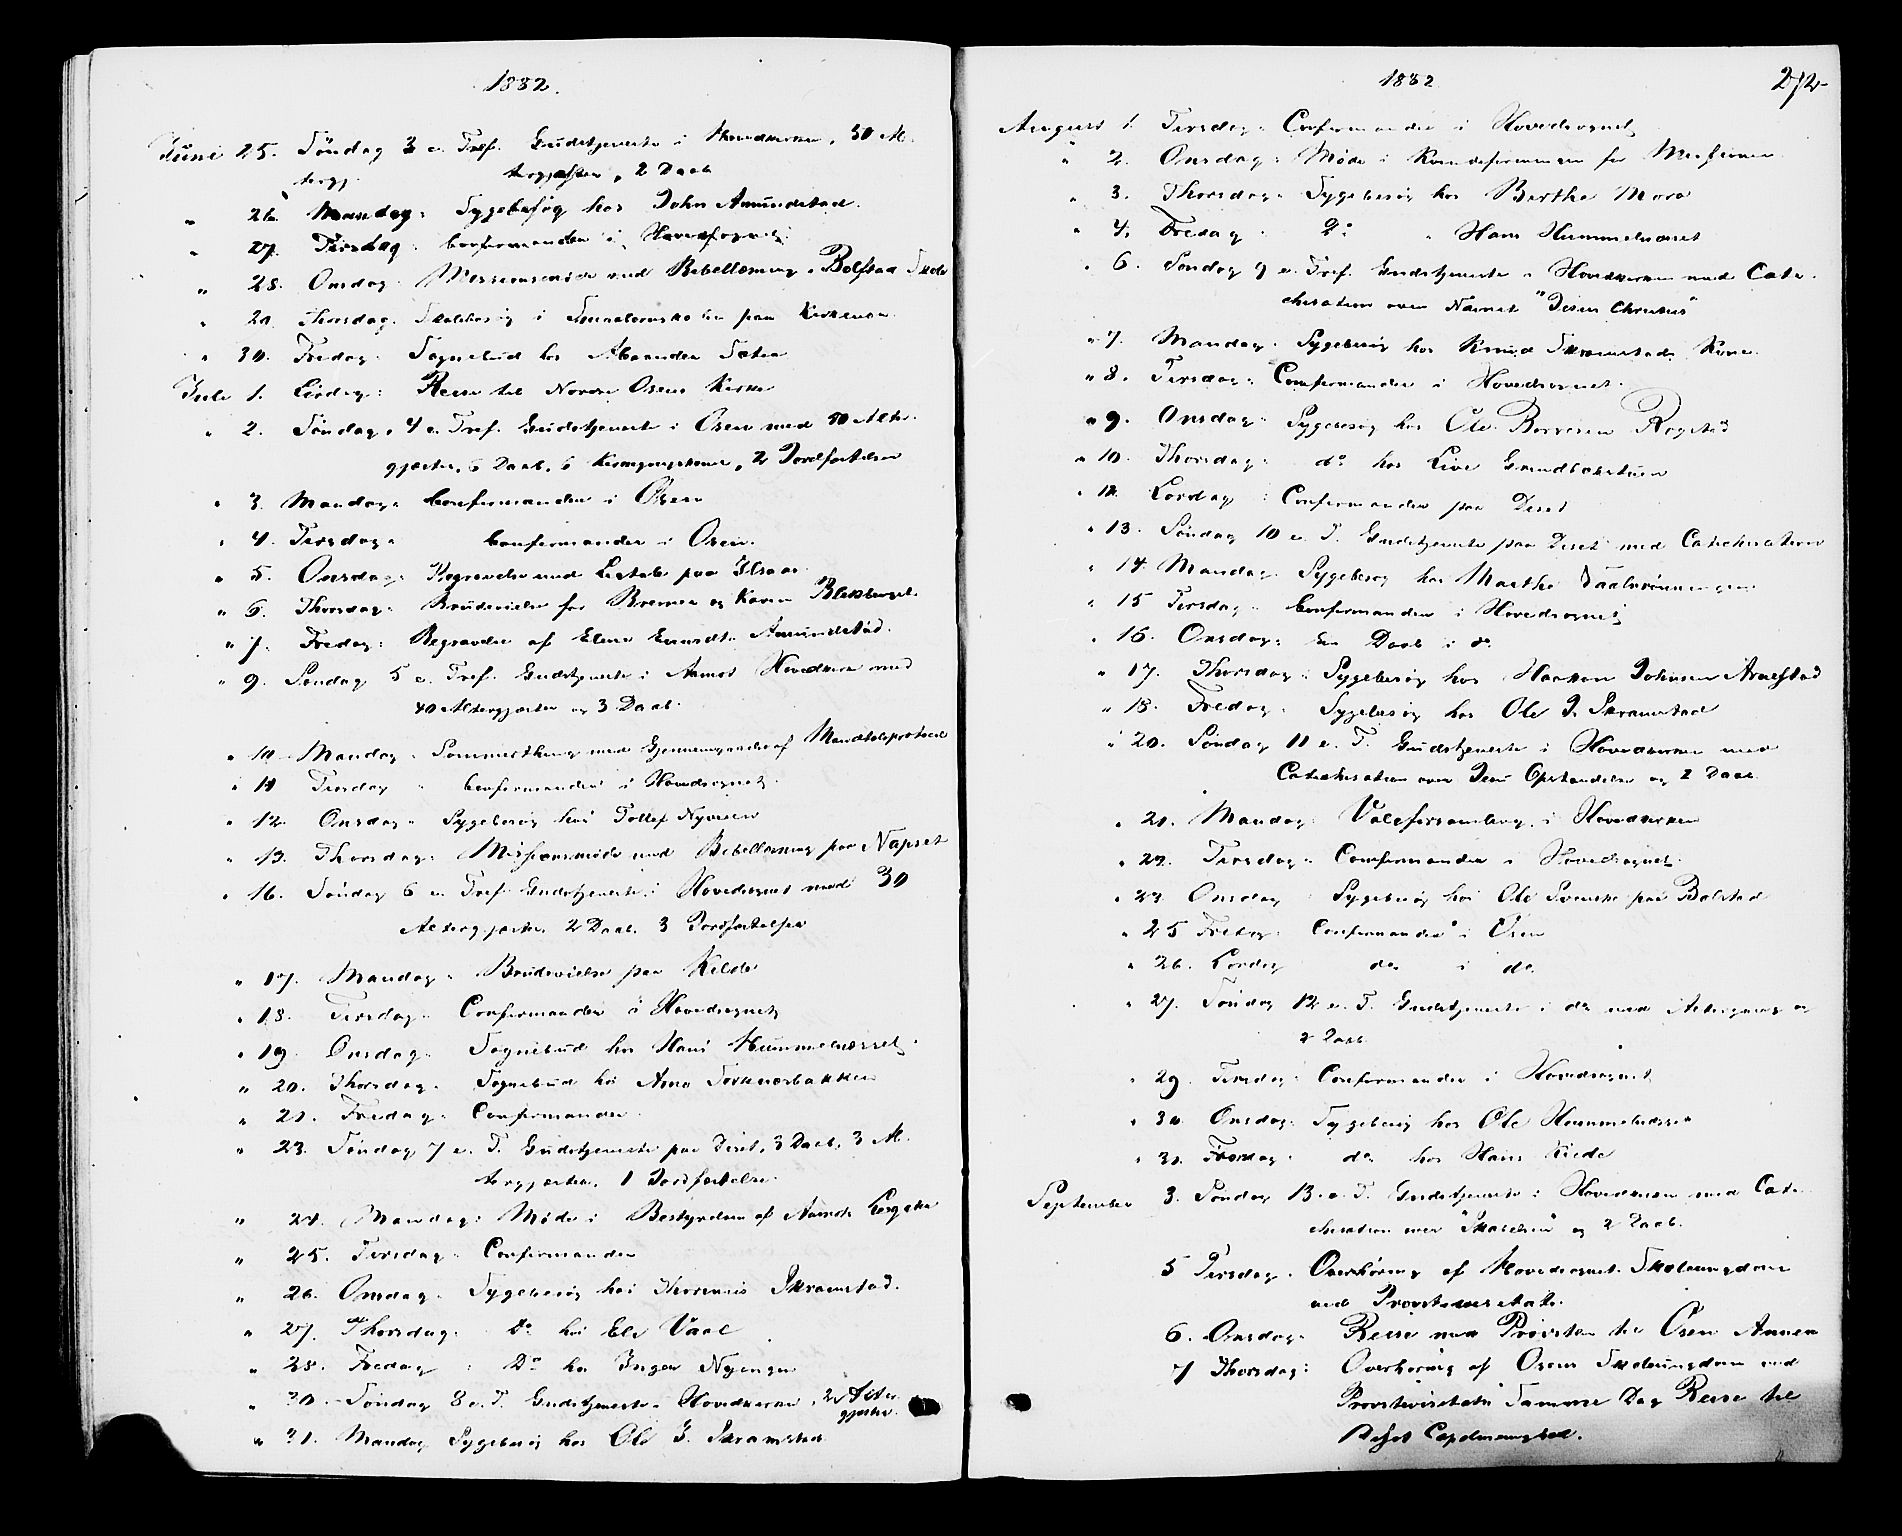 1882.
Juni 25. Söndag 3 e. Tref. Gudstjeneste i Hovedkirken, 50 Al-
tergj. tergjæster, 2 Daab
" 26. Mandag: Sygebesøg hos John Amundstad.
" 27. Tirsdag: Confirmander i Hovedsognet.
" 28. Onsdag: Missionsmøde med Bibellæsning i Bolstad Skole
" 29. Torsdag. Skolebesøg i paa Kirkenær.
" 30. Fredag. Sognebud hos Sætre
Juli 1. Lördag: Reise til Nordre Osens Kirke
" 2. Söndag, 4 e. Tref. Gudstjeneste i Osen med 50 Alter-
gjæster, 6 Daab, 6 , 2 Jordfæstelser
" 3. Mandag: Confirmander i Osen
" 4. Tirsdag: Confirmander i Osen.
" 5. Onsdag: Begravelse med paa
" 6. Thorsdag: Brudevielse for og Karen
" 7. Fredag: Begravelse af Elene Amundstad.
" 9. Söndag 5 e. Tref. Gudstjeneste i Aamot Hovedkirke med
40 Altergjæster og 3 Daab.
" 10 Mandag. Sommerthing med Gjennemgaaelse af Mandtalsprotocol
" 11 Tirsdag " Confirmander i Hovedsognet.
" 12. Onsdag. Sygebesøg hos Tollef Nyveien
" 13. Thorsdag: Missionsmøde med Bibellæsning paa Næpset
" 16. Söndag 6 e. Tref. Gudstjeneste i Hovedsognet med 30
Altergjæster, 2 Daab, 3 Jordfæstelser
" 17. Mandag: Brudevielse paa Kilde
" 18. Tirsdag: Confirmander i Hovedsognet
" 19. Onsdag: Sognebud hos Hans Hummelnæsset.
" 20. Thorsdag. Sognebud hos Anne
" 21. Fredag: Confirmander.
" 23. Söndag 7 e. T. Gudstjeneste paa Deset, 3 Daab, 3 Al-
tergjæster, 1 Jordfæstelse.
" 24. Mandag: Møde i Bestyrelsen af Aamots
" 25. Tirsdag: Confirmander
" 26. Onsdag. Sygebesøg hos Skramstad.
" 27. Thorsdag. Do hos Eli Vaal
" 28. Fredag : Do hos Inger
" 30. Söndag 8 e. T. Gudstjeneste i Hovedkirken, 2 Alter-
gjæster.
" 31. Mandag Sygebesøg hos Ole J. Skramstad
1882
272
August 1. Tirsdag: Confirmander i Hovedsognet
" 2. Onsdag: Møde i for Missionen
" 3. Thorsdag. Sygebesøg hos Berthe Mora
" 4. Fredag Do " Hans Hummelnæset
" 6. Söndag 9 e. Tref. Gudstjeneste i Hovedkirken med Cate-
chisation over Navnet "Jesus Christus"
" 7. Mandag. Sygebesøg hos Knud Skramstads Kone.
" 8. Tirsdag: Confirmander i Hovedsognet.
" 9. Onsdag: Sygebesøg hos Ole Borresen Rogstad
" 10. Thorsdag: do hos Live Grundbakstuen
" 12. Lordag : Confirmander paa Deset
" 13. Söndag 10 e. T. Gudstjeneste paa Deset med Catechisation
" 14. Mandag. Sygebesøg hos Marthe
" 15 Tirsdag. Confirmander i Hovedsognet
" 16. Onsdag: En Daab i do
" 17. Thorsdag: Sygebesøg hos Haakon Johnsen Arnestad
" 18. Fredag. Sygebesøg hos Ole J. Skramstad
" 20. Söndag 11 e. T. Gudstjeneste i Hovedkirken med
Catechisation over Jesu Opstandelse og 2 Daab.
" 21. Mandag: Valgforsamling i Hovedkirken
" 22. Tirsdag: Confirmander i Hovedsognet.
" 23. Onsdag : Sygebesøg hos Ole Svenske paa Bolstad
" 25 Fredag: Confirmander i Osen
" 26. Lordag do i do
" 27. Söndag 12 e. T. Gudstjeneste i do med Altergang og
2 Daab
" 29. Tirsdag: Confirmander i Hovedsognet
" 30. Onsdag: Sygebesøg hos Ole
" 31. Torsdag: do hos Hans Kilde
September 3. Söndag 13. e. T. Gudstjeneste i Hovedkirken med Cate-
chisation over "Skabelsen" og 2 Daab.
5 Tirsdag. Overhøring af Hovedsognets Skoleungdom
ved Provstevisitats.
6. Onsdag: Reise med Provsten til Osen Annex
7 Thorsdag: Overhøring af Osens Skoleungdom ved
Provstevisitats Samme Dag Reise til